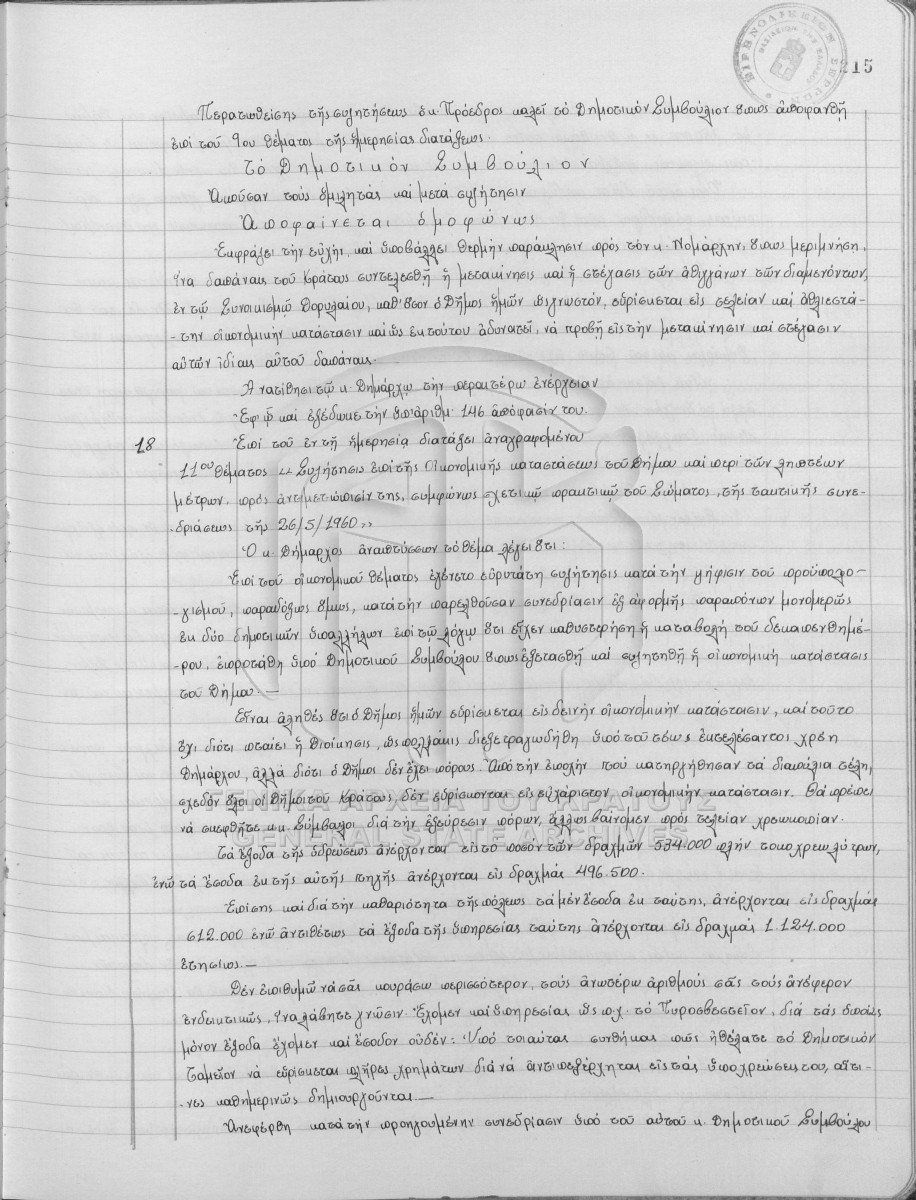 ΕΙΡΗΝΟΔΙΚΕΙΟΝ ΣΕΡΡΩΝ
215
Περατωθείσης τῆς συζητήσεως ὁ κ. Πρόεδρος καλεῖ τό Δημοτικόν Συμβούλιον ὅπως ἀποφανθῇ
ἐπί τοῦ 9ου θέματος τῆς ἡμερησίας διατάξεως.
Τό Δημοτικόν Συμβούλιον
Ἀκοῦσαν τούς ὁμιλητάς καί μετά συζήτησιν
Ἀποφαίνεται ὁμοφώνως
Ἐκφράζει τήν εὐχήν, καί ὑποβάλλει θερμήν παράκλησιν πρός τόν κ. Νομάρχην, ὅπως μεριμνήσῃ,
ἵνα δαπάναις τοῦ Κράτους συντελεσθῇ ἡ μετακίνησις καί ἡ στέγασις τῶν ἀθιγγάνων τῶν διαμενόντων,
ἐν τῷ Συνοικισμῷ Δορυλαίου, καθ' ὅσον ὁ Δῆμος ἡμῶν ὡς γνωστόν, εὑρίσκεται εἰς τελείαν καί ἀθλιεστά-
-την οἰκονομικήν κατάστασιν καί ὡς ἐκ τούτου ἀδυνατεῖ, νά προβῇ εἰς τήν μετακίνησιν καί στέγασιν
αὐτῶν ἰδίαις αὐτοῦ δαπάναις.
Ἀνατίθησι τῷ κ. Δημάρχῳ τήν περαιτέρω ἐνέργειαν
Ἐφ' ᾧ καί ἐξέδωκε τήν ὑπ' ἀριθμ. 146 ἀπόφασίν του.
18
Ἐπί τοῦ ἐν τῇ ἡμερησίᾳ διατάξει ἀναγραφομένου
11ου θέματος « Συζήτησις ἐπί τῆς Οἰκονομικῆς καταστάσεως τοῦ Δήμου καί περί τῶν ληπτέων
μέτρων, πρός ἀντιμετώπισίν της, συμφώνως σχετικῷ πρακτικῷ τοῦ Σώματος, τῆς τακτικῆς συνε-
-δριάσεως τῆς 26/5/1960 »
Ὁ κ. Δήμαρχος ἀναπτύσσων τό θέμα λέγει ὅτι :
Ἐπί τοῦ οἰκονομικοῦ θέματος ἐγένετο εὐρυτάτη συζήτησις κατά τήν ψήφισιν τοῦ προϋπολο-
-γισμοῦ, παραδόξως ὅμως, κατά τήν παρελθοῦσαν συνεδρίασιν ἐξ ἀφορμῆς παραπόνων μονομερῶς
ἐκ δύο δημοτικῶν ὑπαλλήλων ἐπί τῷ λόγῳ ὅτι εἶχεν καθυστερήσῃ ἡ καταβολή τοῦ δεκαπενθημέ-
-ρου, ὑπό Δημοτικοῦ Συμβούλου ὅπως ἐξετασθῇ καί συζητηθῇ ἡ οἰκονομική κατάστασις
τοῦ Δήμου.—
Εἶναι ἀληθές ὅτι ὁ Δῆμος ἡμῶν εὑρίσκεται εἰς δεινήν οἰκονομικήν κατάστασιν, καί τοῦτο
ὄχι διότι πταίει ἡ Διοίκησις, ὡς πολλάκις διεξετραγωδήθη ὑπό τοῦ τέως ἐκτελέσαντος χρέη
Δημάρχου, ἀλλά διότι ὁ Δῆμος δέν ἔχει πόρους. Ἀπό τήν ἐποχήν πού κατηργήθησαν τά διαπύλια τέλη,
σχεδόν ὅλοι οἱ Δῆμοι τοῦ Κράτους, δέν εὑρίσκονται εἰς εὐχάριστον, οἰκονομικήν κατάστασιν. Θά πρέπει
νά σκεφθῆτε κ.κ. Σύμβουλοι διά τήν ἐξεύρεσιν πόρων, ἄλλως βαίνομεν πρός τελείαν χρεωκοπίαν.
Τά ἔξοδα τῆς ὑδρεύσεως ἀνέρχονται εἰς τό ποσόν τῶν δραχμῶν 534.000 πλήν τοκοχρεωλύτρων,
ἐνῶ τά ἔσοδα ἐκ τῆς αὐτῆς πηγῆς ἀνέρχονται εἰς δραχμάς 496.500.
Ἐπίσης καί διά τήν καθαριότητα τῆς πόλεως τά μέν ἔσοδα ἐκ ταύτης, ἀνέρχονται εἰς δραχμάς
612.000 ἐνῶ ἀντιθέτως τά ἔξοδα τῆς ὑπηρεσίας ταύτης ἀνέρχονται εἰς δραχμάς 1.124.000
ἐτησίως.—
Δέν ἐπιθυμῶ νά σᾶς κουράσω περισσότερον, τούς ἀνωτέρω ἀριθμούς σᾶς τούς ἀνέφερον
ἐνδεικτικῶς, ἵνα λάβητε γνῶσιν. Ἔχομεν καί ὑπηρεσίας ὡς π.χ. τό Πυροσβεστεῖον, διά τάς ὁποίας
μόνον ἔξοδα ἔχομεν καί ἔσοδον οὐδέν. Ὑπό τοιαύτας συνθήκας πῶς ἠθέλατε τό Δημοτικόν
Ταμεῖον νά εὑρίσκεται πλῆρες χρημάτων διά νά ἀντιπεξέρχηται εἰς τάς ὑποχρεώσεις του, αἵτι-
-νες καθημερινῶς δημιουργοῦνται.—
Ἀνεφέρθη κατά τήν προηγουμένην συνεδρίασιν ὑπό τοῦ αὐτοῦ κ. Δημοτικοῦ Συμβούλου
ΓΕΝΙΚΑ ΑΡΧΕΙΑ ΤΟΥ ΚΡΑΤΟΥΣ
GENERAL STATE ARCHIVES